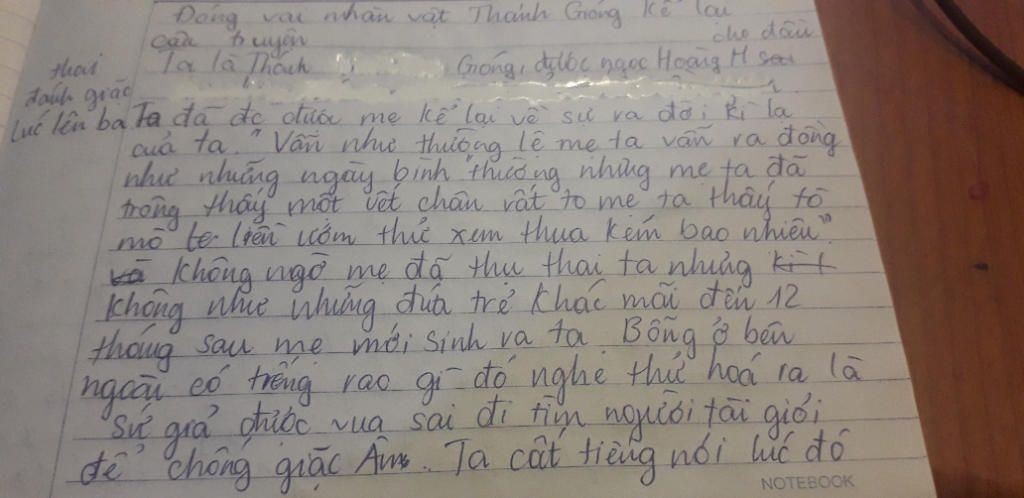 Đóng vai nhân vật Thánh Gióng kể lại
câu truyện
Ta là Thánh Gióng, được ngọc Hoàng sai
cho đầu
thai
đánh giặc
lúc lên ba Ta đã đc được mẹ kể lại về sự ra đời kì lạ
của ta. "Vẫn như thường lệ mẹ ta vẫn ra đồng
như những ngày bình thường nhưng mẹ ta đã
trông thấy một vết chân rất to mẹ ta thấy tò
mò te liền ướm thử xem thua kém bao nhiêu"
và không ngờ mẹ đã thụ thai ta nhưng
không như những đứa trẻ khác mãi đến 12
tháng sau mẹ mới sinh ra ta. Bỗng ở bên
ngoài có tiếng rao gì đó nghe thử hoá ra là
sứ giả được vua sai đi tìm người tài giỏi
để chống giặc Ân. Ta cất tiếng nói lúc đó
NOTEBOOK